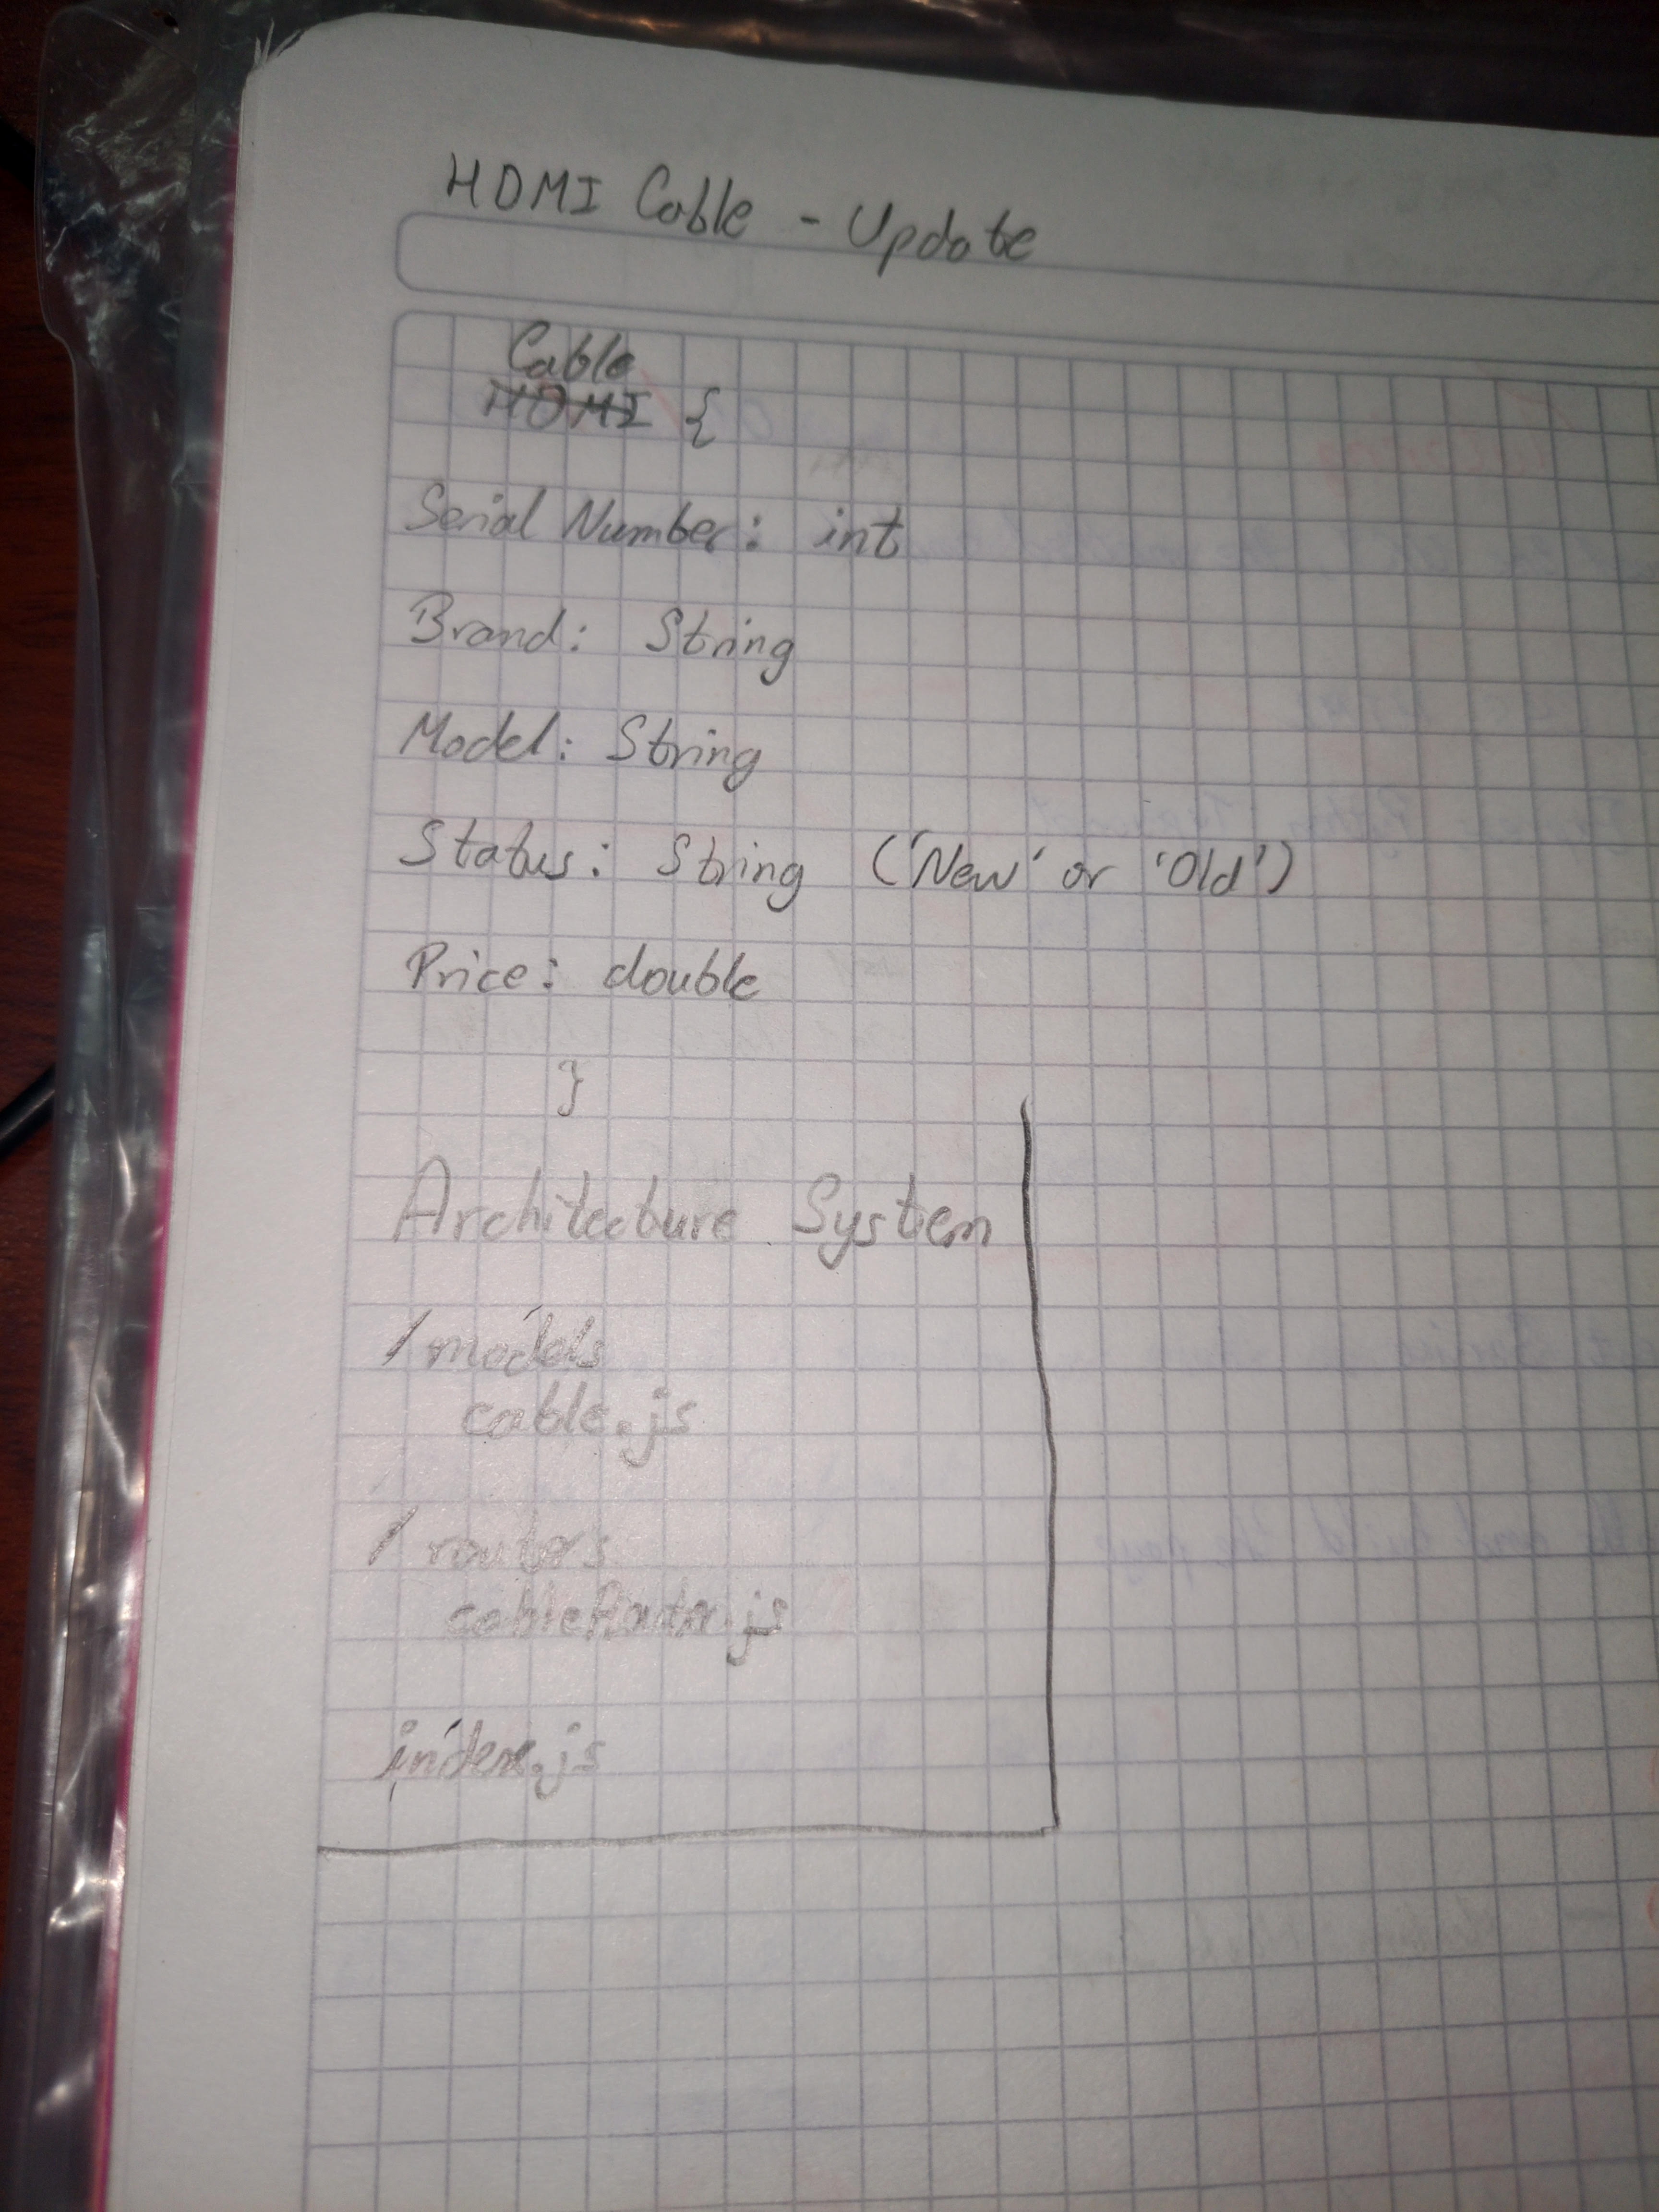 HDMI Cable - Update
Cable
HDMI {
Serial Number: int
Brand: String
Model: String
Status: String ('New' or 'Old')
Price: double
}
Architecture System
/models
cable.js
/routers
cableRouter.js
index.js